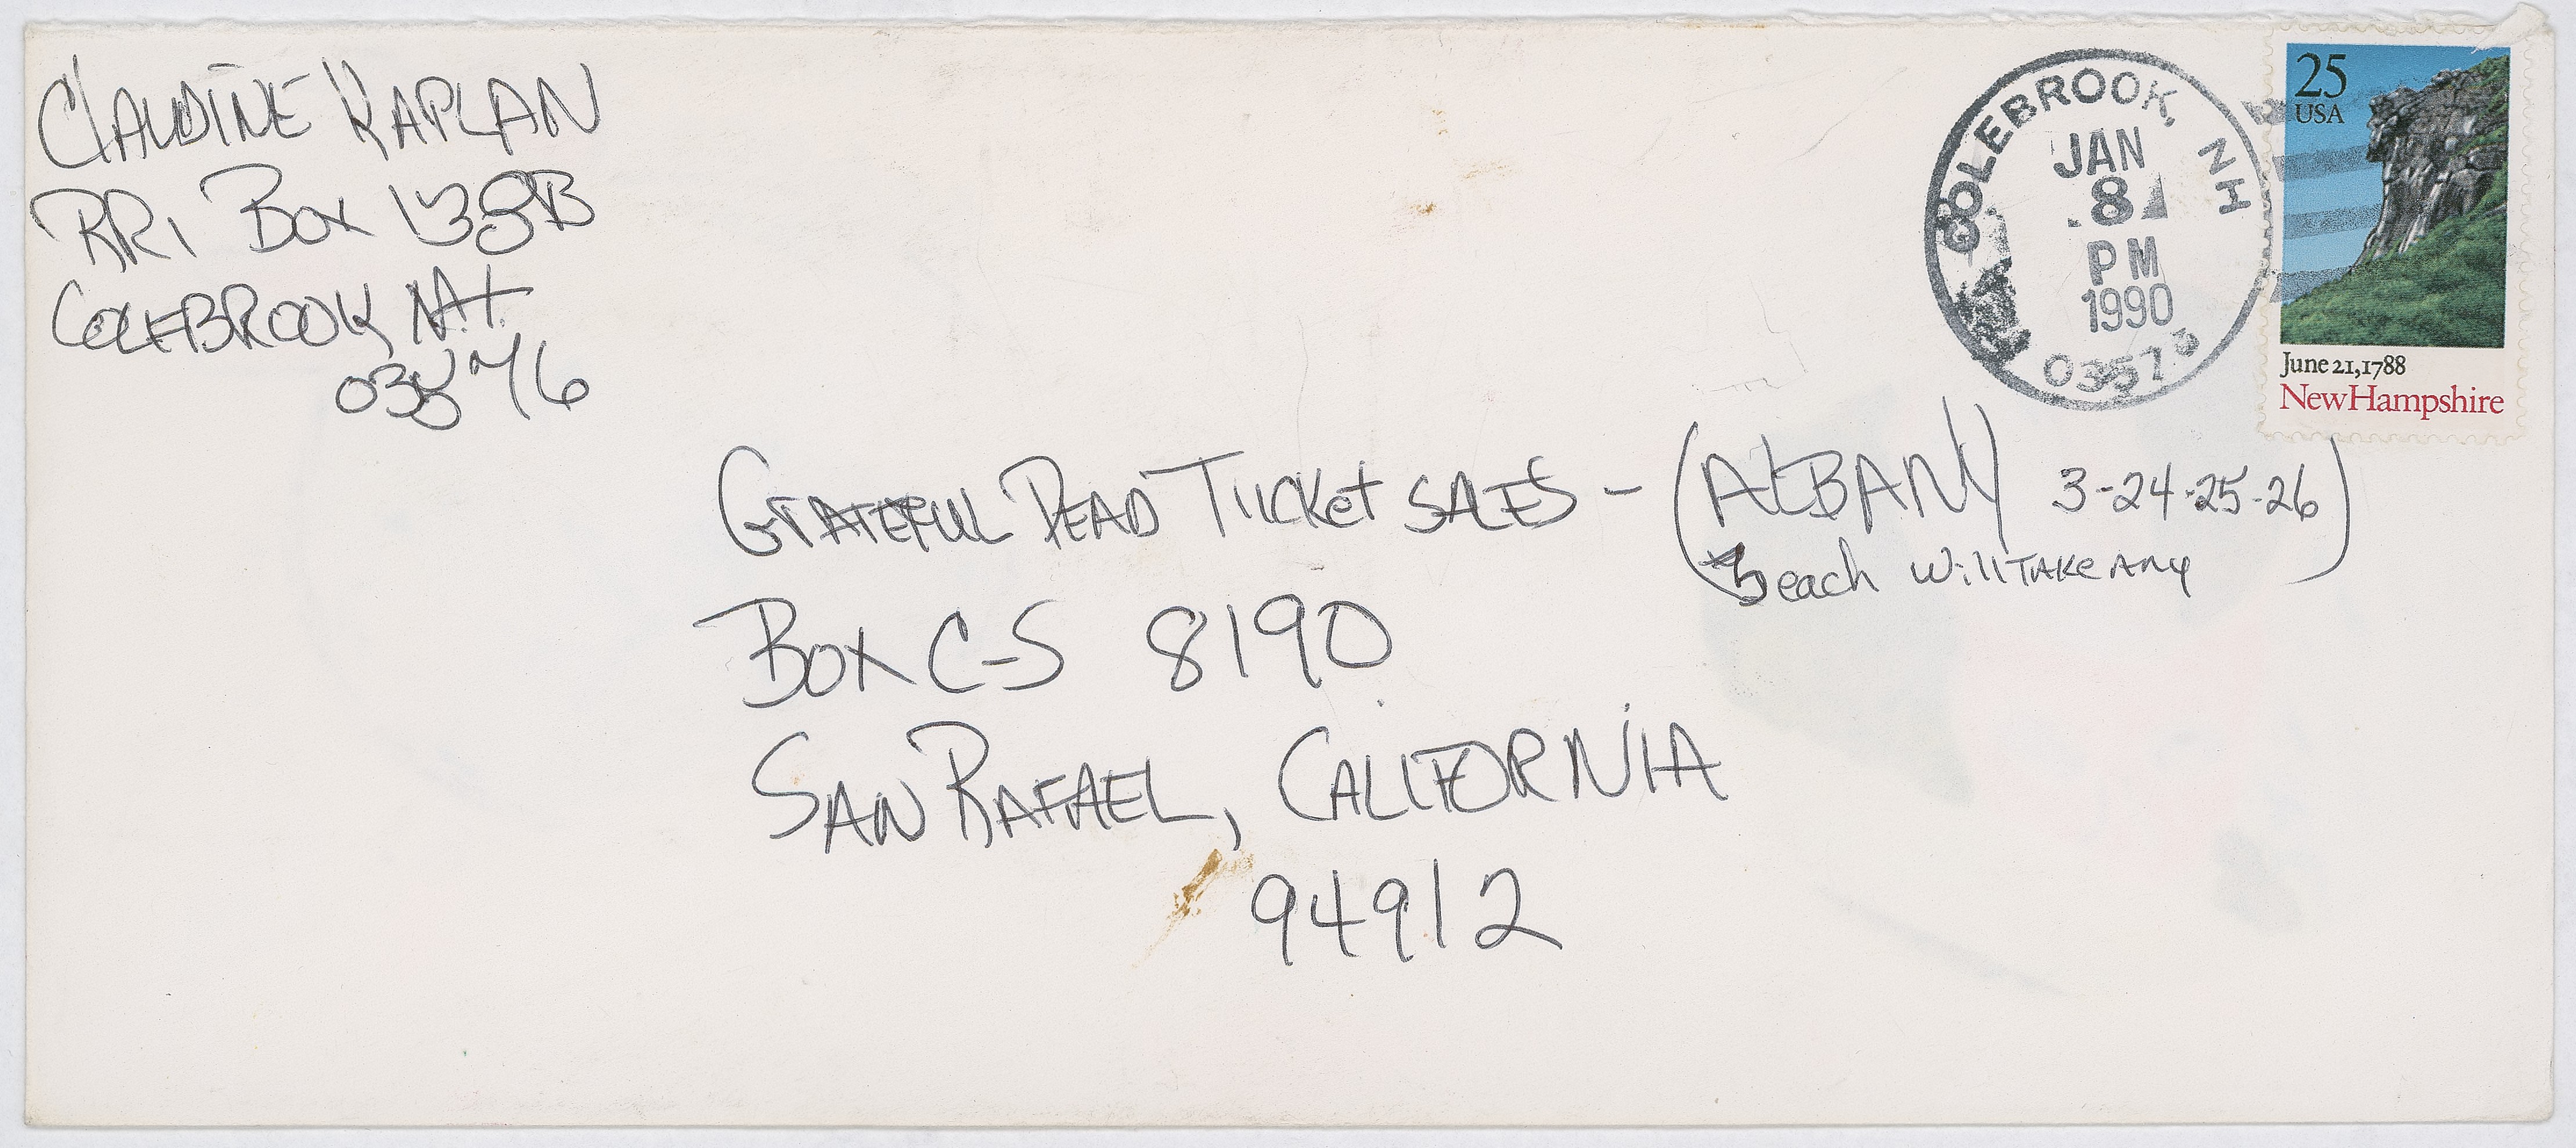 CLAUDINE KAPLAN
RR1 Box 138B
COLEBROOK, N.H.
03576
COLEBROOK, NH
JAN
8
PM
1990
03576
25
USA
June 21, 1788
New Hampshire
GRATEFUL DEAD TICKET SALES - (ALBANY 3-24-25-26
3 each will TAKE ANY)
Box C-S 8190
SAN RAFAEL, CALIFORNIA
94912